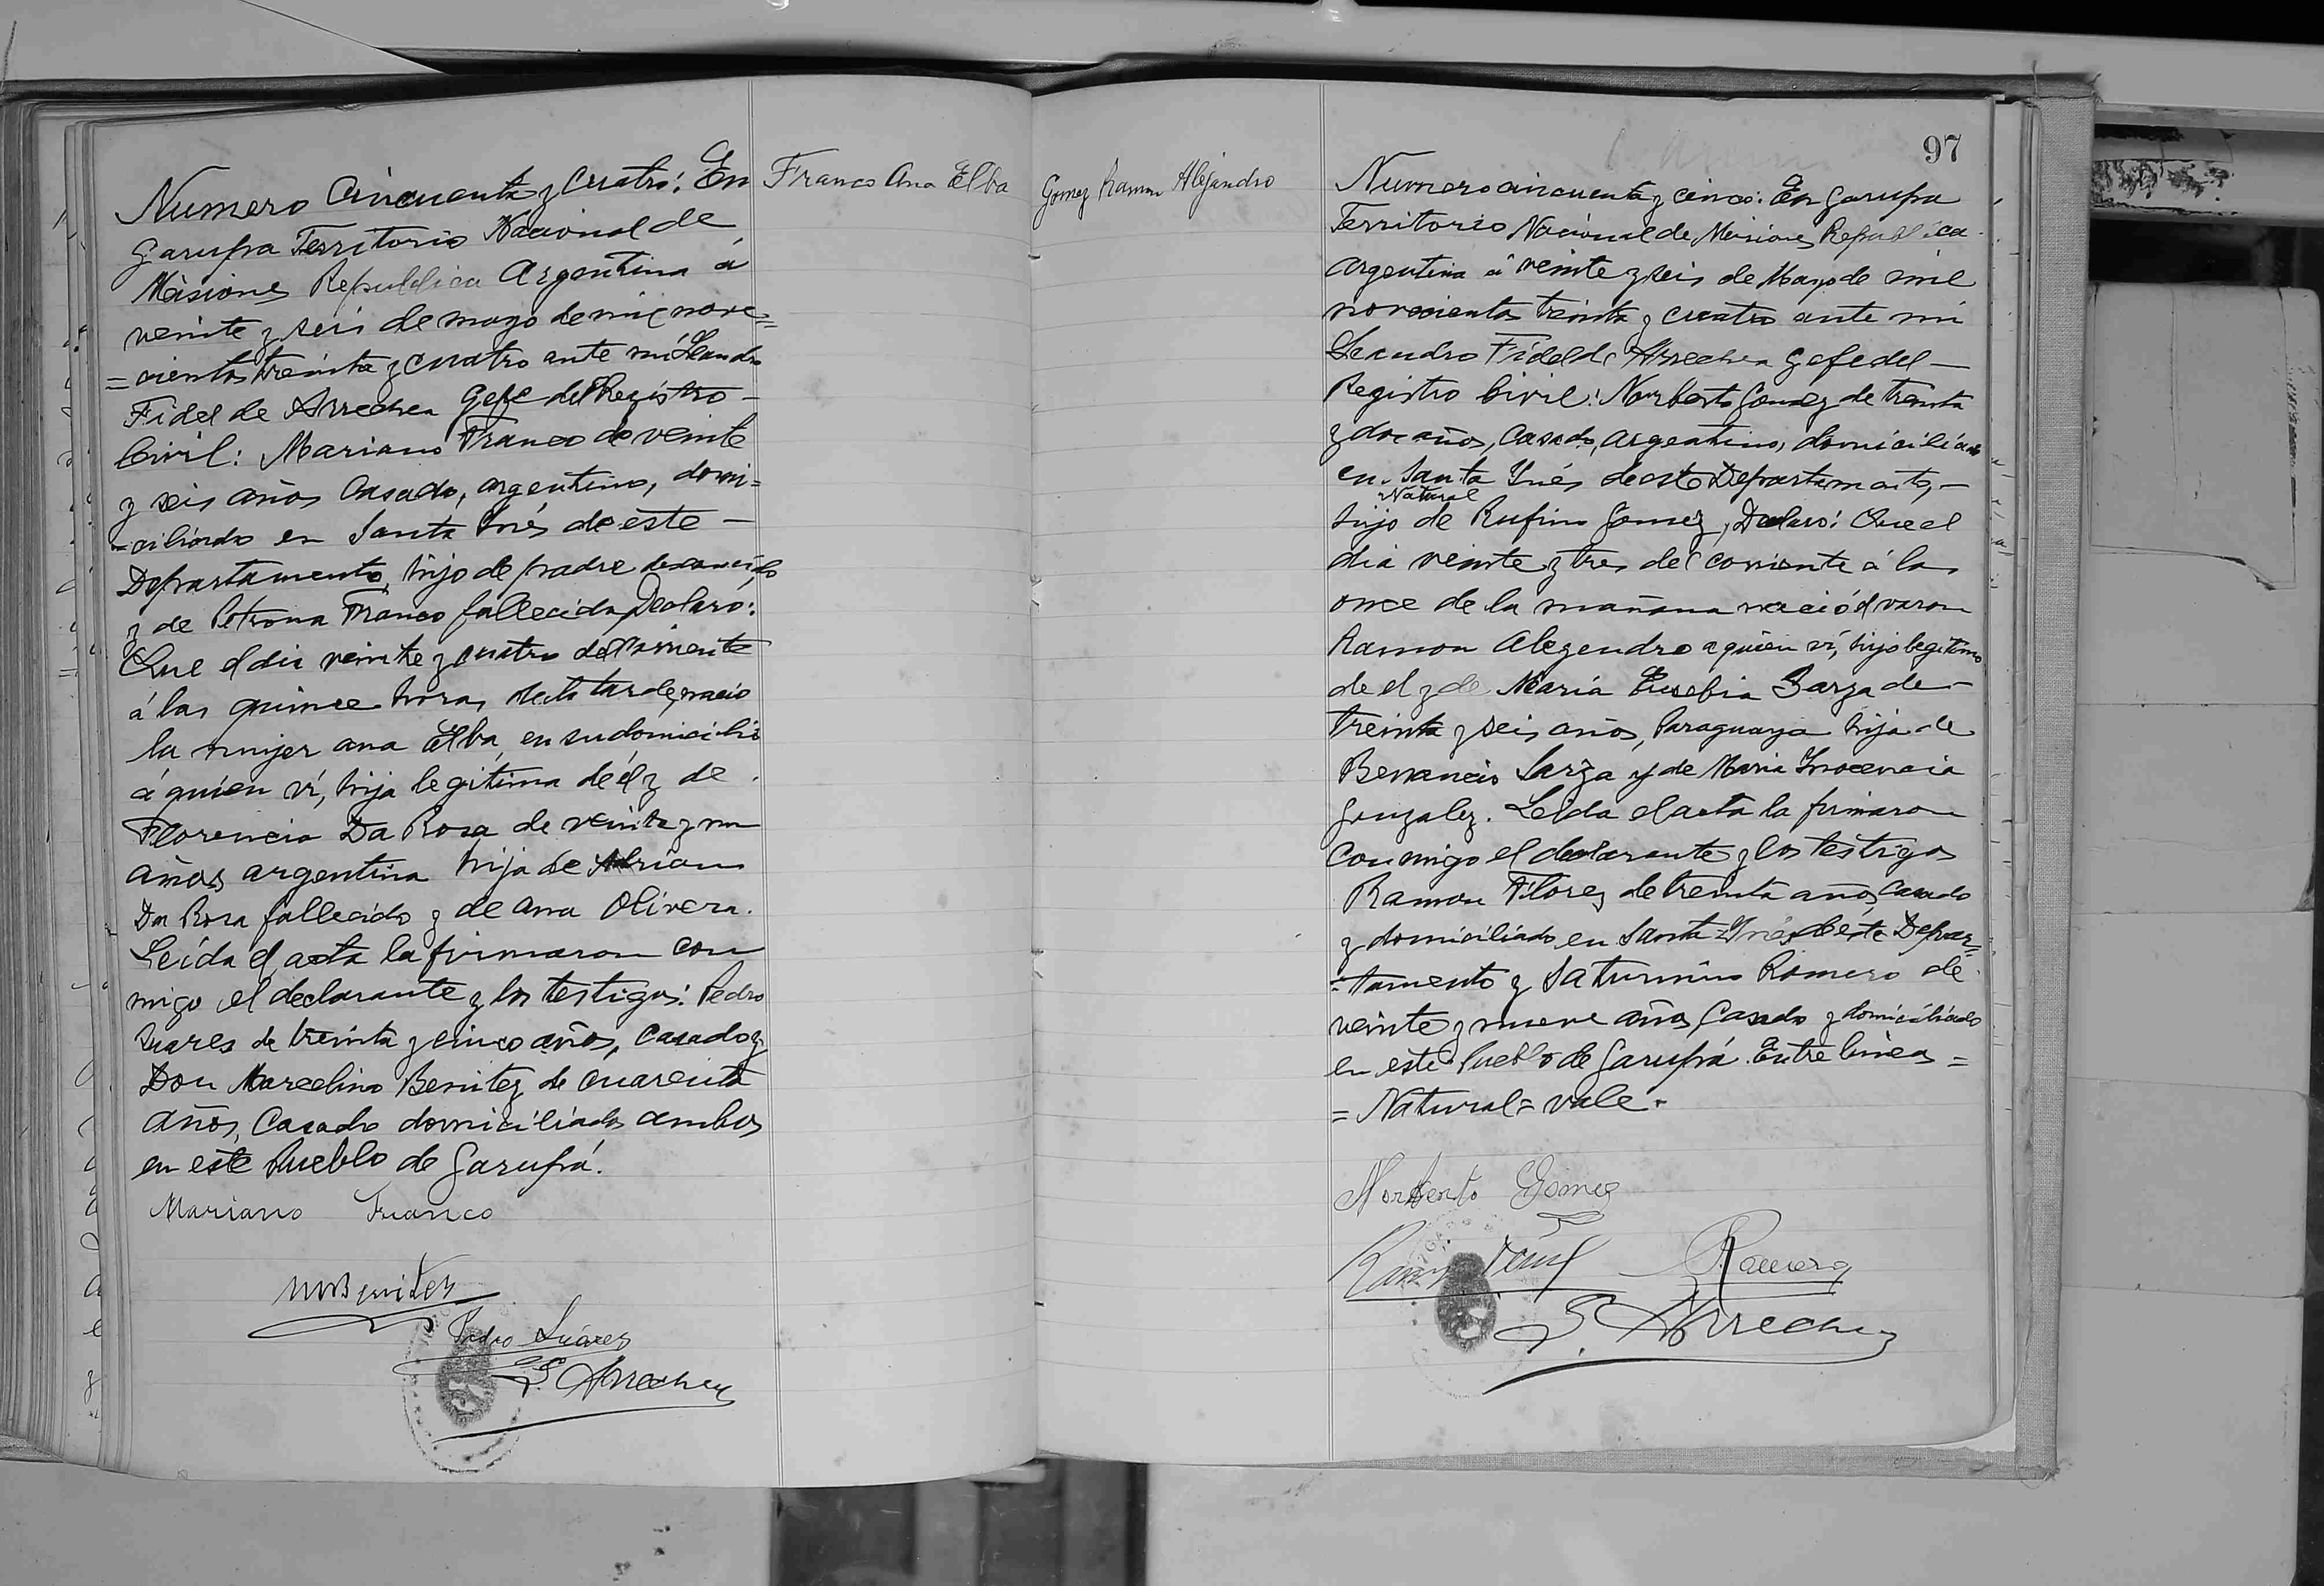 Numero Cincuenta y Cuatro: En
Garupa Territorio Nacional de
Misiones Republica Argentina á
veinte y seis de mayo de mil nove=
=cientos treinta y cuatro ante mi Leandro
Fidel de Arrechea Gefe del Registro —
Civil: Mariano Franco de veinte
y seis años Casado, argentino, domi=
=ciliado en Santa Inés de este —
Departamento, hijo de padre desconocido
y de Petrona Franco fallecida, Declaró:
Que el dia veinte y cuatro del corriente
á las quince horas de la tarde, nació
la mujer ana Elba, en su domicilio
á quien ví, hija legítima de él y de
Florencia Da Rosa de veinte y un
años, argentina hija de Adriano
Da Rosa fallecido y de Ana Olivera.
Leída el acta la firmaron con
migo el declarante y los testigos: Pedro
Suares de treinta y cinco años, Casado y
Don Marcelino Benitez de cuarenta
años, Casado domiciliados ambos
en este Pueblo de Garupá.
Mariano Franco
M Benitez
Pedro Suárez
L. Arrechea
Franco Ana Elba
Gomez Ramon Alejandro
97
Numero cincuenta y cinco: En Garupa
Territorio Nacional de Misiones Republica
Argentina á veinte y seis de Mayo de mil
novecientos treinta y cuatro ante mi
Leandro Fidel de Arrechea Gefe del —
Registro Civil: Norberto Gomez de treinta
y dos años, Casado, Argentino, domiciliado
en Santa Ynés de este Departamento, —
Natural
hijo de Rufino Gomez, Declaró: Que el
dia veinte y tres del corriente á las
once de la mañana nació el varon
Ramon Alegendro a quien ví, hijo legitimo
de el y de Maria Eusebia Sarza de —
treinta y seis años, Paraguaya hija de
Benancio Sarza y de Maria Ynocencia
Gonzalez. Leida el acta la firmaron
conmigo el declarante y los testigos
Ramon Flores de treinta años, casado
y domiciliado en Santa Ynés de éste Depar=
=tamento y Saturnino Romero de
veinte y nueve años, Casado y domiciliado
en este Pueblo de Garupá. Entre lineas =
= Natural = vale.
Norberto Gomez
Ramon
S. Romero
L. Arrechea